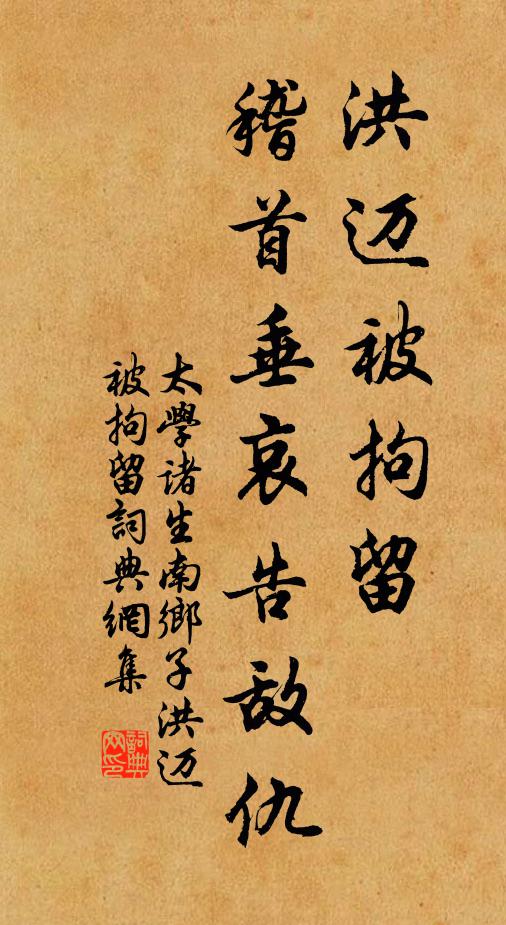 洪迈被拘留
稽首垂哀告敌仇
太學诸生南鄉子洪迈
被拘留詞典網集
詞典
网印